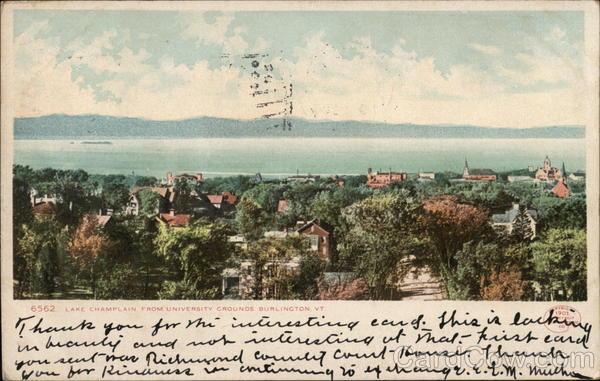 6562. LAKE CHAMPLAIN FROM UNIVERSITY GROUNDS BURLINGTON, VT.
Thank you for the interesting card. This is lacking
in beauty and not interesting at that. first card
you sent was Richmond county Court House. Thank
you for Kindness in continuing to exchange.
CardCow.com